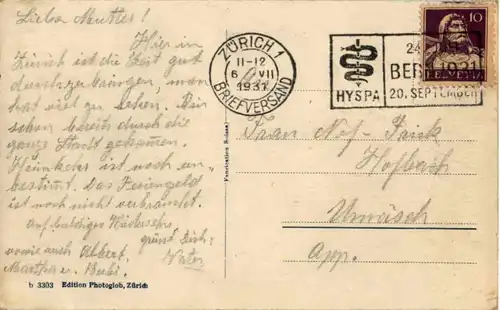 Liebe Mutter!
Hier in
Zürich ist die Zeit gut
durchzubringen, man
hat viel zu sehen. Bin
schon bereits durch die
ganze Stadt gekommen.
Heimkehr ist noch un-
bestimt. Das Feriengeld
ist noch nicht verbraucht.
Auf baldiges Wiedersehn
grüsst Dich
sowie auch Albert, Vater
Martha u. Bubi.
b 3303 Edition Photoglob, Zürich
ZÜRICH 1
11-12
6 VII
1931
BRIEFVERSAND
HYSPA
24.
BERN 1931
20. SEPTEMBER
10
HELVETIA
Frau Nef-
Hofbach
Urnäsch
App.